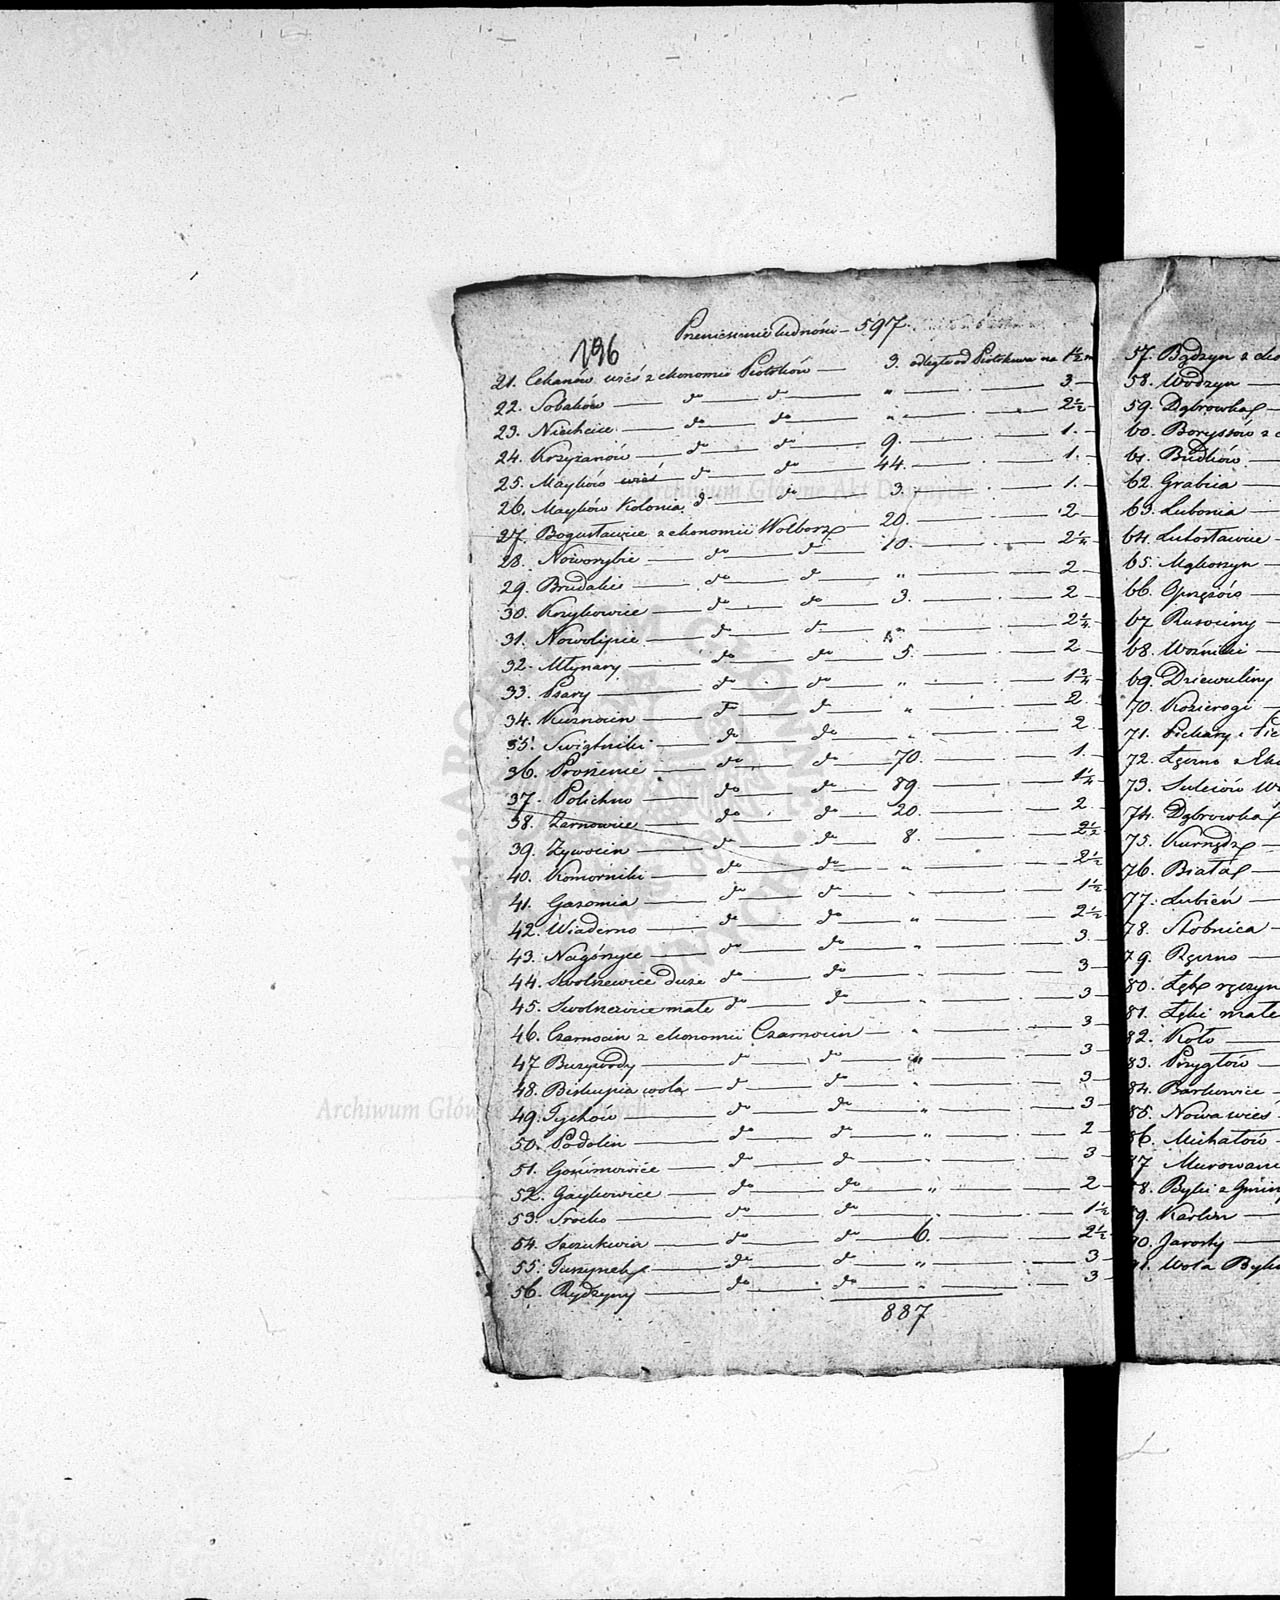 Przeniesienie ludności — 597
196
21. Cekanów wieś z ekonomii Piotrków — 3. odległe od Piotrkowa na 1½ m
22. Sobaków — do — do — „ — 3 —
23. Niechcice — do — do — „ — 2½
24. Krzyżanów — do — do — 9. — 1.
25. Mayków wieś do — do — 44. — 1.
26. Mayków Kolonia d — do — 3. — 1.
27. Bogusławice z ekonomii Wolborz — 20. — 2
28. Noworybie — do — do — 10. — 2¼
29. Brudaki — do — do — „ — 2
30. Krzykowice — do — do — 3. — 2
31. Nowolipie — do — do — „ — 2¼
32. Młynary — do — do — 5. — 2
33. Psary — do — do — „ — 1¾
34. Kuźnocin — do — do — „ — 2
35. Swiątniki — do — do — „ — 2
36. Proszenie — do — do — 70. — 1.
37. Polichno — do — do — 89. — 1¼
38. Żarnowice — do — do — 20. — 2
39. Żywocin — do — do — 8. — 2½
40. Komorniki — do — do — „ — 2½
41. Gazomia — do — do — 1½
42. Wiaderno — do — do — „ — 2½
43. Nagórzyce — do — do — „ — 3.
44. Swolszewice duże do — do — „ — 3
45. Swolszewice małe do — do — „ — 3
46. Czarnocin z ekonomii Czarnocin — „ — 3
47 Buzywody — do — do — „ — 3
48. Biskupia wola — do — do — „ — 3
49. Tychów — do — do — „ — 3
50. Podolin — do — do — „ — 2
51. Gośimowice — do — do — 3
52. Gaykowice — do — do — „ — 2
53. Srocko — do — do — „ — 1½
54. Szczukwin — do — do — 6. — 2½
55. Tuszynek — do — do — „ — 3
56. Rydzyny — do — do — „ — 3
887
57. Bądzyn z
58. Wodzyn —
59. Dąbrowka
60. Borysów z
61. Budków
62. Grabica —
63. Lubonia —
64. Lutosławice —
65. Mąkoszyn —
66. Gpszęsów —
67 Rusociny —
68. Woźniki —
69. Dziewuliny
70. Kozierogi
71. Piekary i
72. Łęczno z
73. Sulejów
74. Dąbrowka
75. Kurnędz —
76. Biała
77. Lubień —
78. Stobnica —
79. Ręczno —
80. Łęk ręczyn
81. Łęki małe
82. Koło —
83. Przygłów —
84. Barkowice —
85. Nowa wieś
86. Michałów —
87 Murowane
88. Byki z Gminy
89. Karlin —
90. Jarosty —
91. Wola Byko
Archiwum Główne Akt Dawnych
Archiwum Główne Akt Dawnych
ARCHIWUM GŁÓWNE